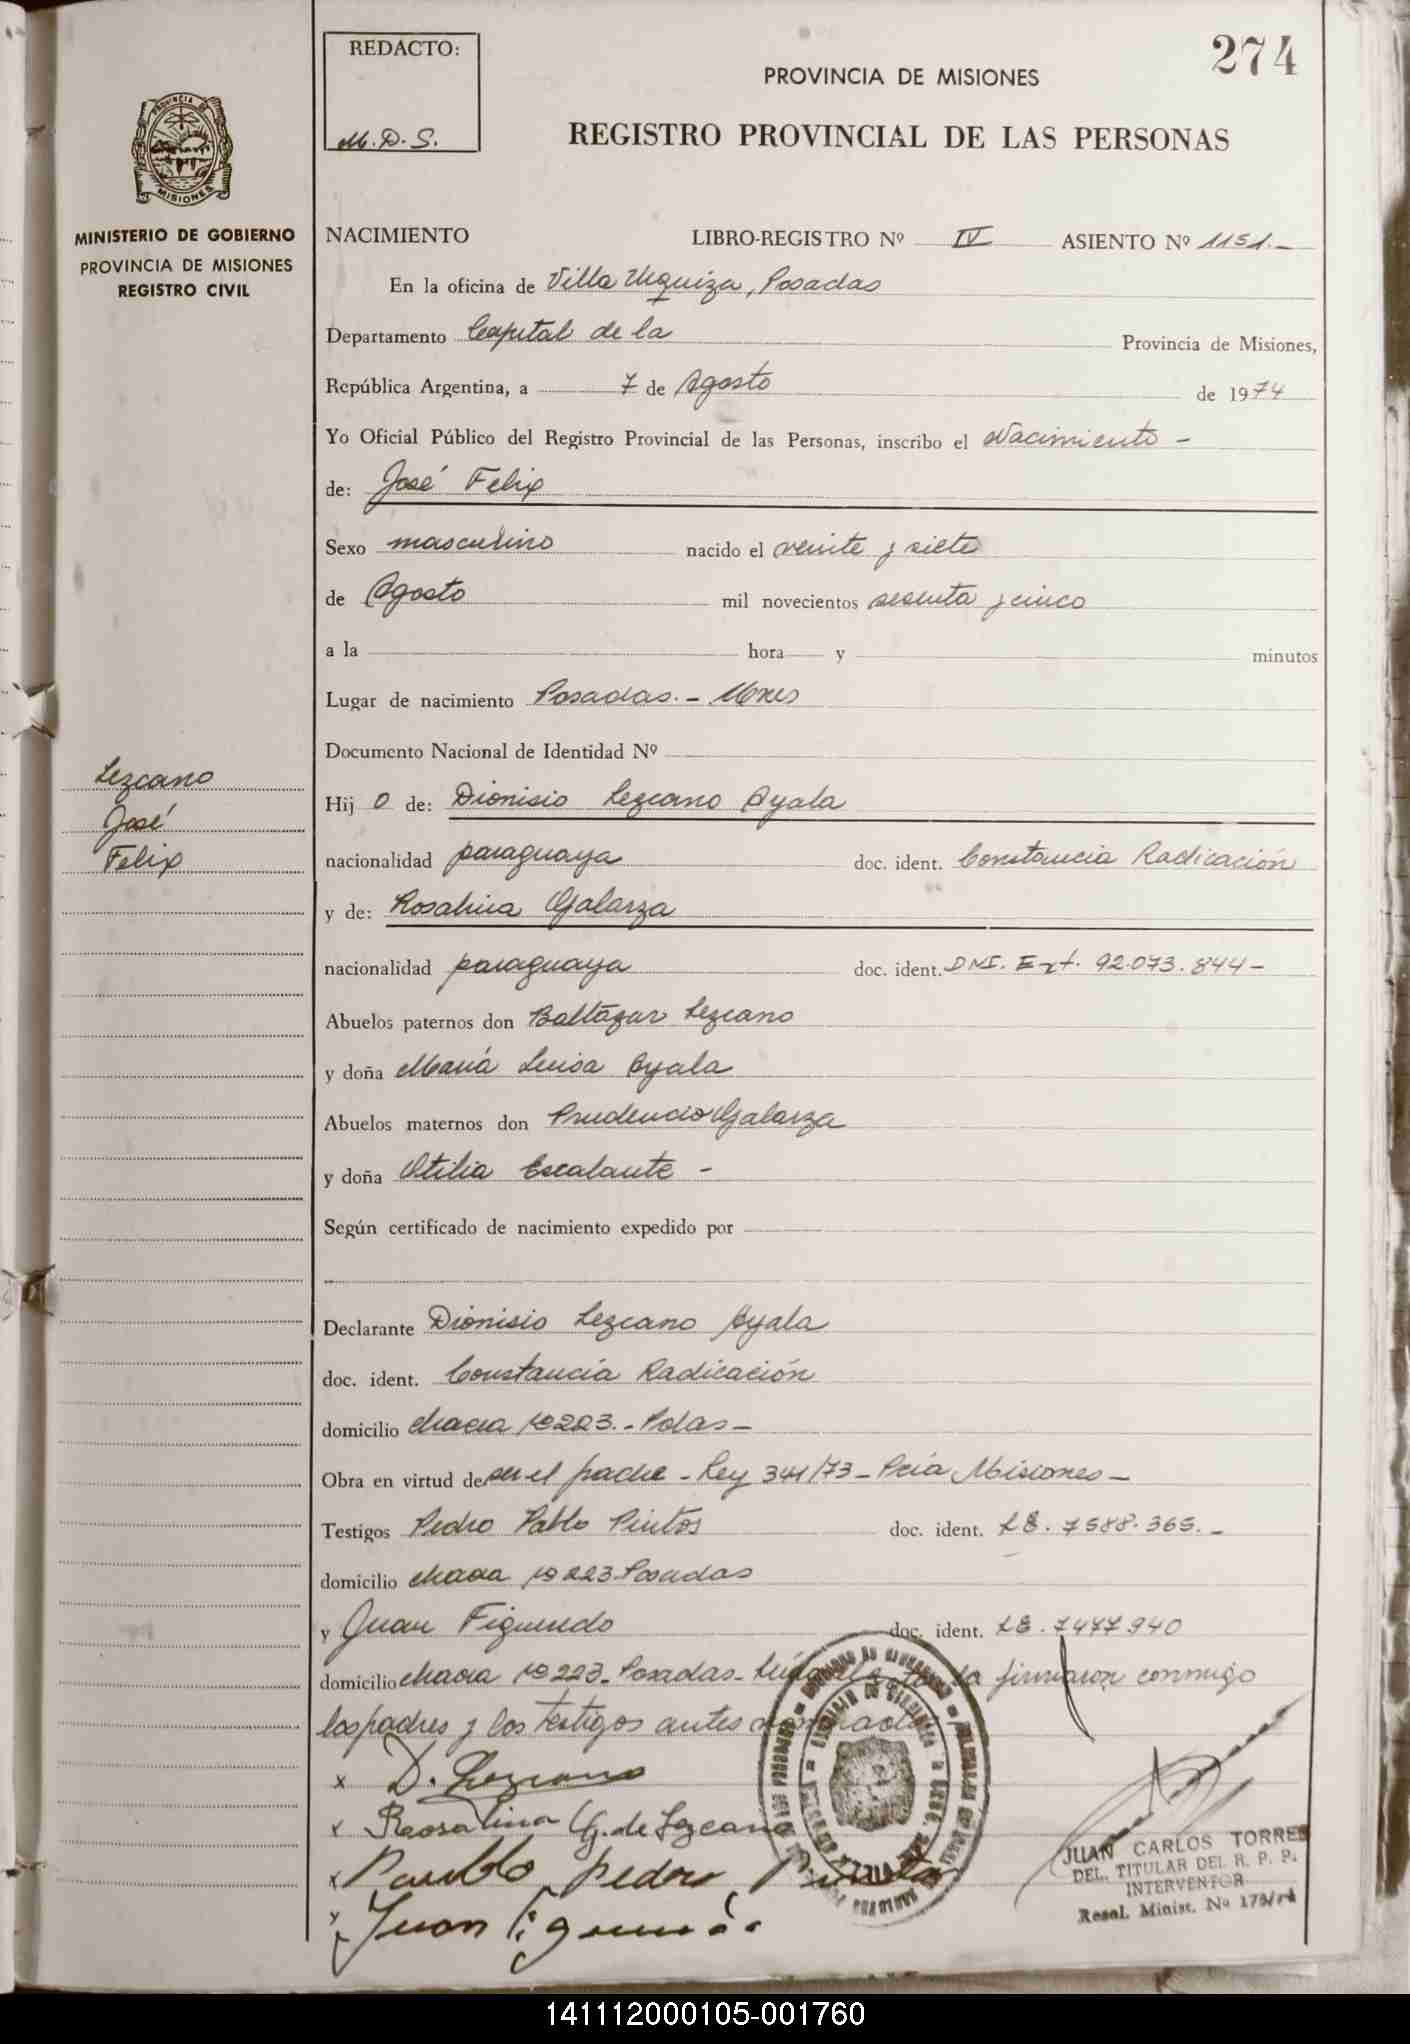 274
REDACTO:
M.D.S.
PROVINCIA DE MISIONES
REGISTRO PROVINCIAL DE LAS PERSONAS
PROVINCIA DE
MISIONES
MINISTERIO DE GOBIERNO
PROVINCIA DE MISIONES
REGISTRO CIVIL
NACIMIENTO LIBRO-REGISTRO Nº IV ASIENTO Nº 1151.-
En la oficina de Villa Urquiza, Posadas
Departamento Capital de la Provincia de Misiones,
República Argentina, a 7 de Agosto de 1974
Yo Oficial Público del Registro Provincial de las Personas, inscribo el Nacimiento -
de: José Felix
Sexo masculino nacido el veinte y siete
de Agosto mil novecientos sesenta y cinco
a la hora y minutos
Lugar de nacimiento Posadas.- Mnes
Documento Nacional de Identidad Nº
Lezcano
José
Felix
Hij o de: Dionisio Lezcano Ayala
nacionalidad paraguaya doc. ident. Constancia Radicación
y de: Rosalina Galarza
nacionalidad paraguaya doc. ident. DNI. Ext. 92.073.844-
Abuelos paternos don Baltázar Lezcano
y doña María Luisa Ayala
Abuelos maternos don Prudencio Galarza
y doña Otilia Escalante -
Según certificado de nacimiento expedido por
Declarante Dionisio Lezcano Ayala
doc. ident. Constancia Radicación
domicilio chacra nº 223.- Pdas-
Obra en virtud de ser el padre - Ley 341/73- Pcia Misiones-
Testigos Pedro Pablo Pintos doc. ident. LE. 7588.365.-
domicilio chacra nº 223 Posadas
y Juan Figueredo doc. ident. LE. 7477940
domicilio chacra nº 223- Posadas- Leída el acta la firmaron conmigo
los padres y los testigos antes nombrados
x D. Lezcano
x Roosalina G. de Lezcano
x Paublo pedro Pintos
x Juan
JUAN CARLOS TORRES
DEL. TITULAR DEL R. P. P.
INTERVENTOR
Resol. Minist. Nº 175/74
141112000105-001760